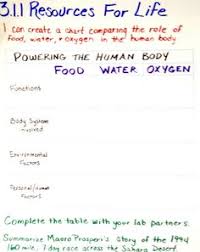 3.1.1 Resources For Life
I can create a chart comparing the role of
food, water, & oxygen in the human body
POWERING THE HUMAN BODY
FOOD WATER OXYGEN
Functions
Body System
involved
Environmental
Factors
Personal/Human
Factors
Complete the table with your lab partners.
Summarize Mauro Prosperi's story of the 1994
160 mile, 7 day race across the Sahara Desert.